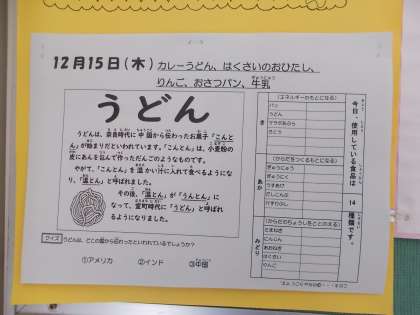 12月15日(木) カレーうどん、はくさいのおひたし、
りんご、おさつパン、牛乳
うどん
うどんは、奈良時代に中国から伝わったお菓子「こんと
ん」が始まりだといわれています。「こんとん」は、小麦粉の
皮にあんを包んで作っただんごのようなものです。
やがて、「こんとん」を温かい汁に入れて食べるようにな
り、「温とん」と呼ばれました。
その後、「温とん」が「うんとん」に
なって、室町時代に「うどん」と呼ばれ
るようになりました。
クイズ うどんは、どこの国から伝わったといわれているでしょうか?
①アメリカ ②インド ③中国
今日、使用している食品は
14
種類です。
き
(エネルギーのもとになる)
パン
うどん
さとう
あか
(からだをつくるもとになる)
ぎゅうにゅう
ぎゅうにく
うすあげ
けずりぶし
みどり
(からだのちょうしをととのえる)
たまねぎ
にんじん
はくさい
りんご